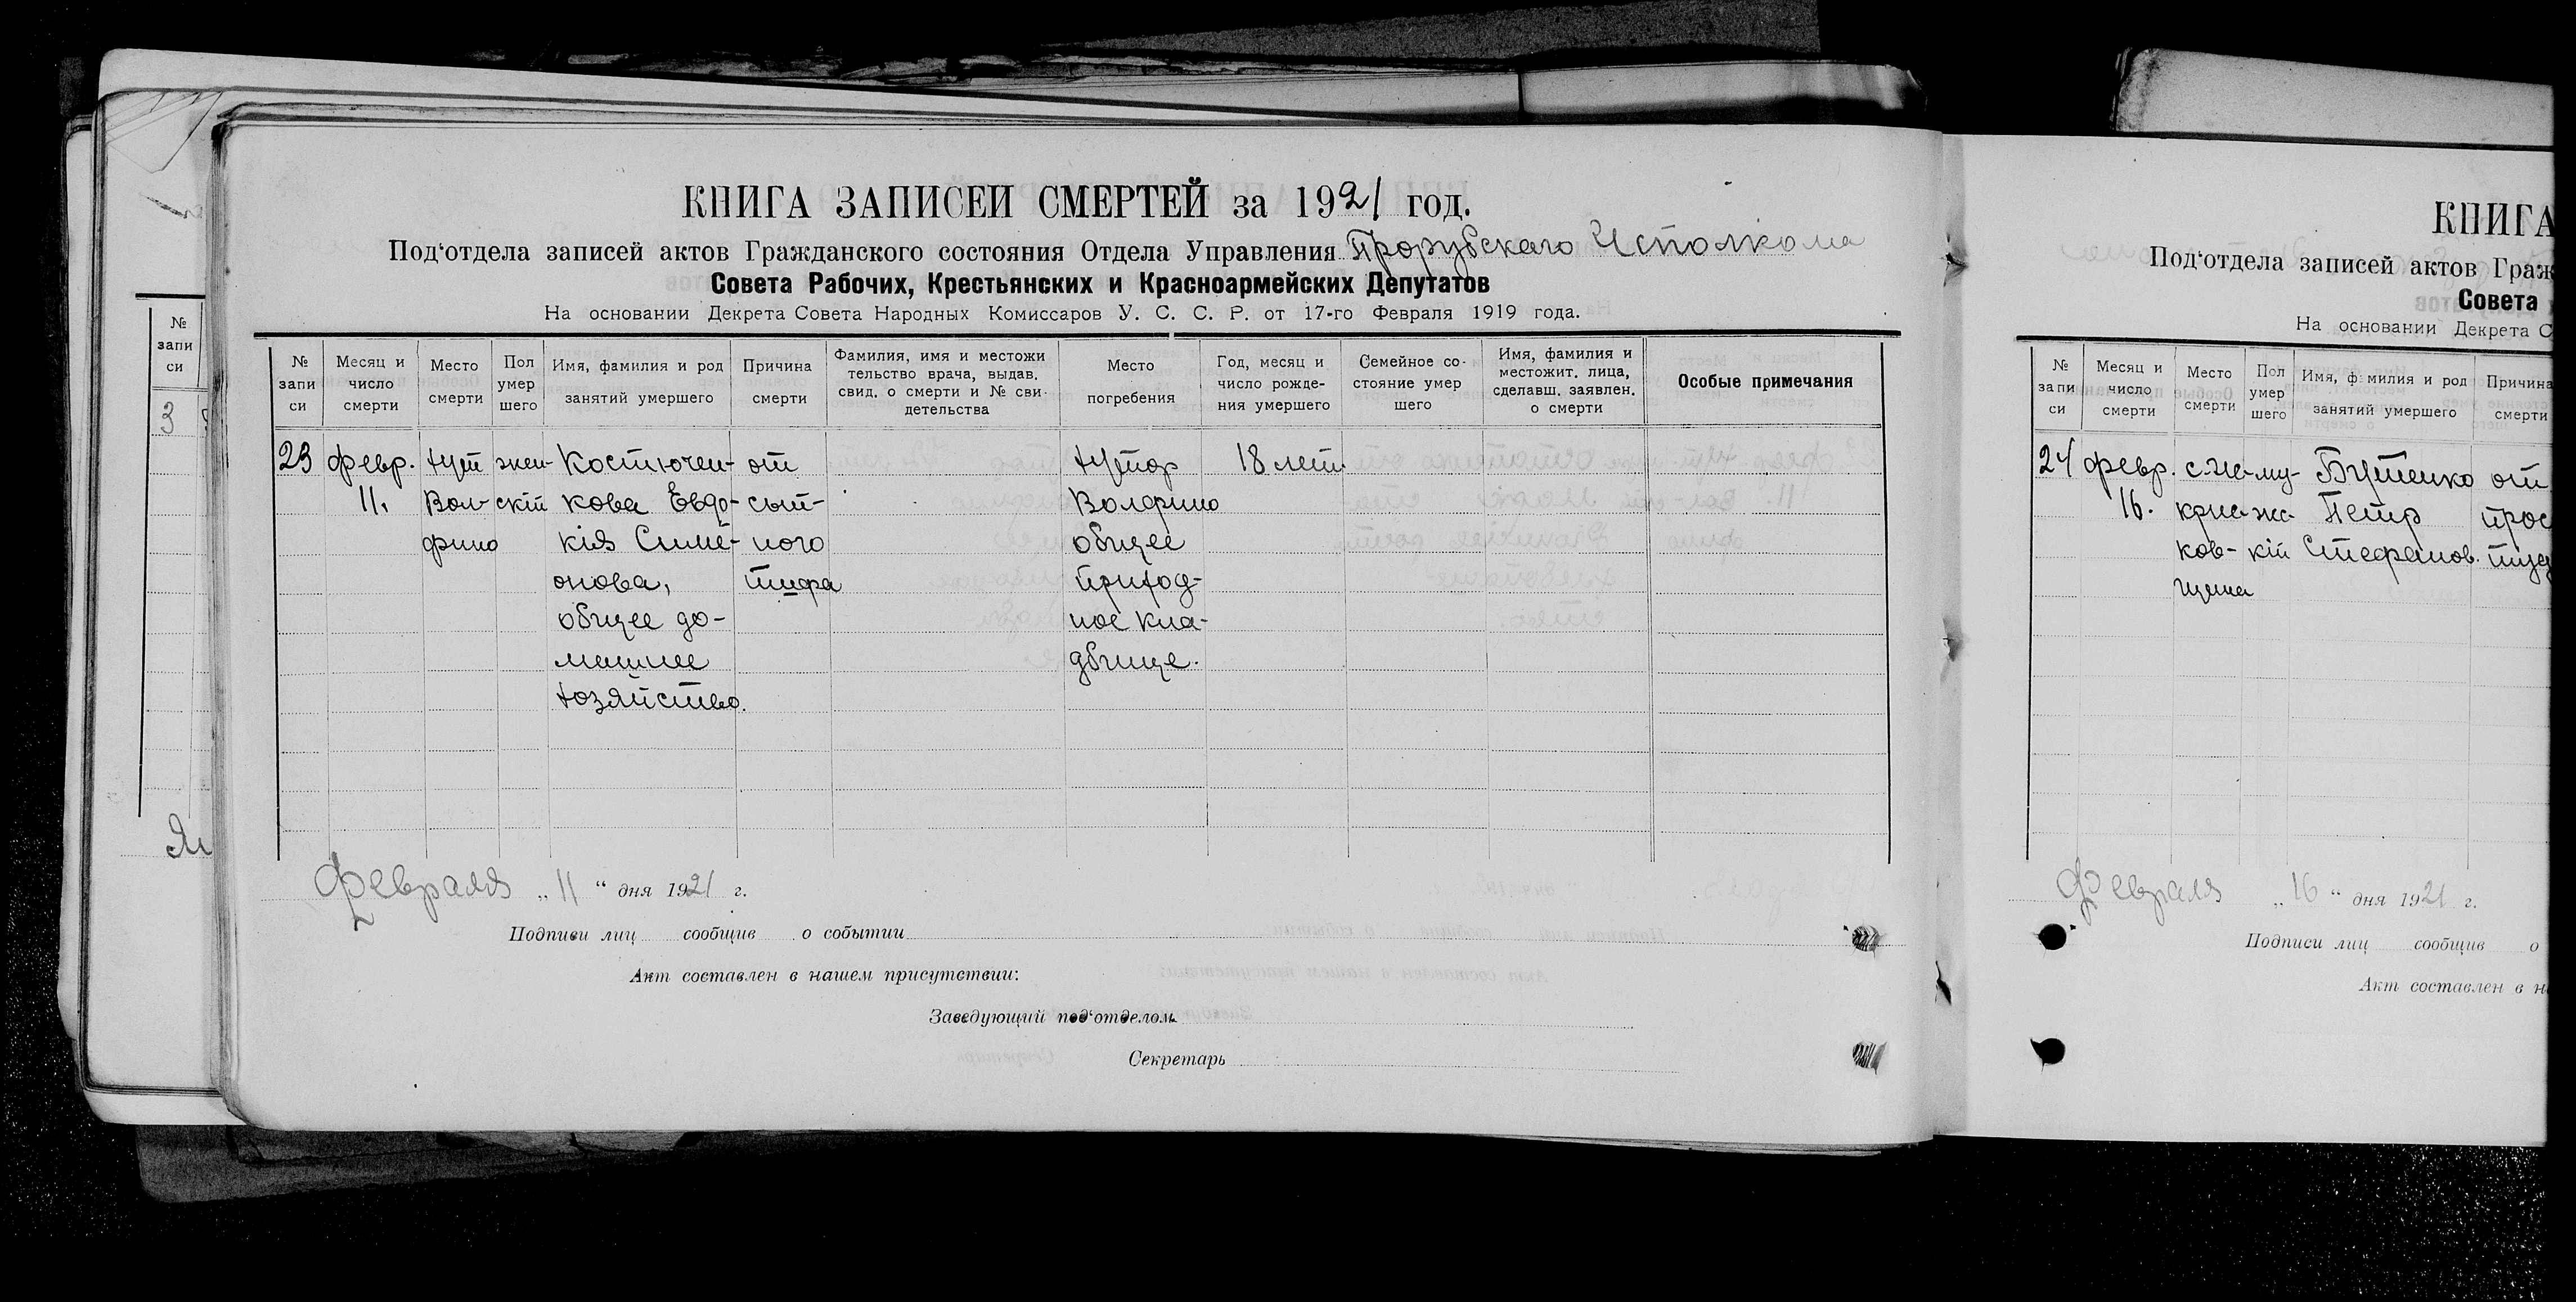 КНИГА ЗАПИСЕЙ СМЕРТЕЙ за 1921 год.
Под‘отдела записей актов Гражданского состояния Отдела Управления Прорубского Исполкома
Совета Рабочих, Крестьянских и Красноармейских Депутатов
На основании Декрета Совета Народных Комиссаров У. С. С. Р. от 17-го Февраля 1919 года.
№ запи си
Месяц и число смерти
Место смерти
Пол умер шего
Имя, фамилия и род занятий умершего
Причина смерти
Фамилия, имя и местожи тельство врача, выдав. свид. о смерти и № сви- детельства
Место погребения
Год, месяц и число рожде- ния умершего
Семейное со- стояние умер шего
Имя, фамилия и местожит. лица, сделавш. заявлен. о смерти
Особые примечания
23 февр. хут жен- Костючен- от хутор 18 лет.
11. Вол- скій кова Евдо- сып- Волфино
фино кія Симе- ного общее
онова, тифа приход-
общее до- ное кла-
машнее дбище.
хозяйство.
Февраля „ 11 “ дня 1921 г.
Подписи лиц сообщив о событии
Акт составлен в нашем присутствии:
Заведующий под‘отделом
Секретарь
№
запи
си
3
КНИГА
Под‘отдела записей актов Граж
Совета
На основании Декрета С
№ запи си
Месяц и число смерти
Место смерти
Пол умер шего
Имя, ф милия и род занятий умершего
Причина смерти
24 февр. с. Не- му- Бутенко от
16. крас- жс- Петр прос
ков- кій Стефанов. туд
щина
Февраля „ 16 “ дня 1921 г.
Подписи лиц сообщив о
Акт составлен в н